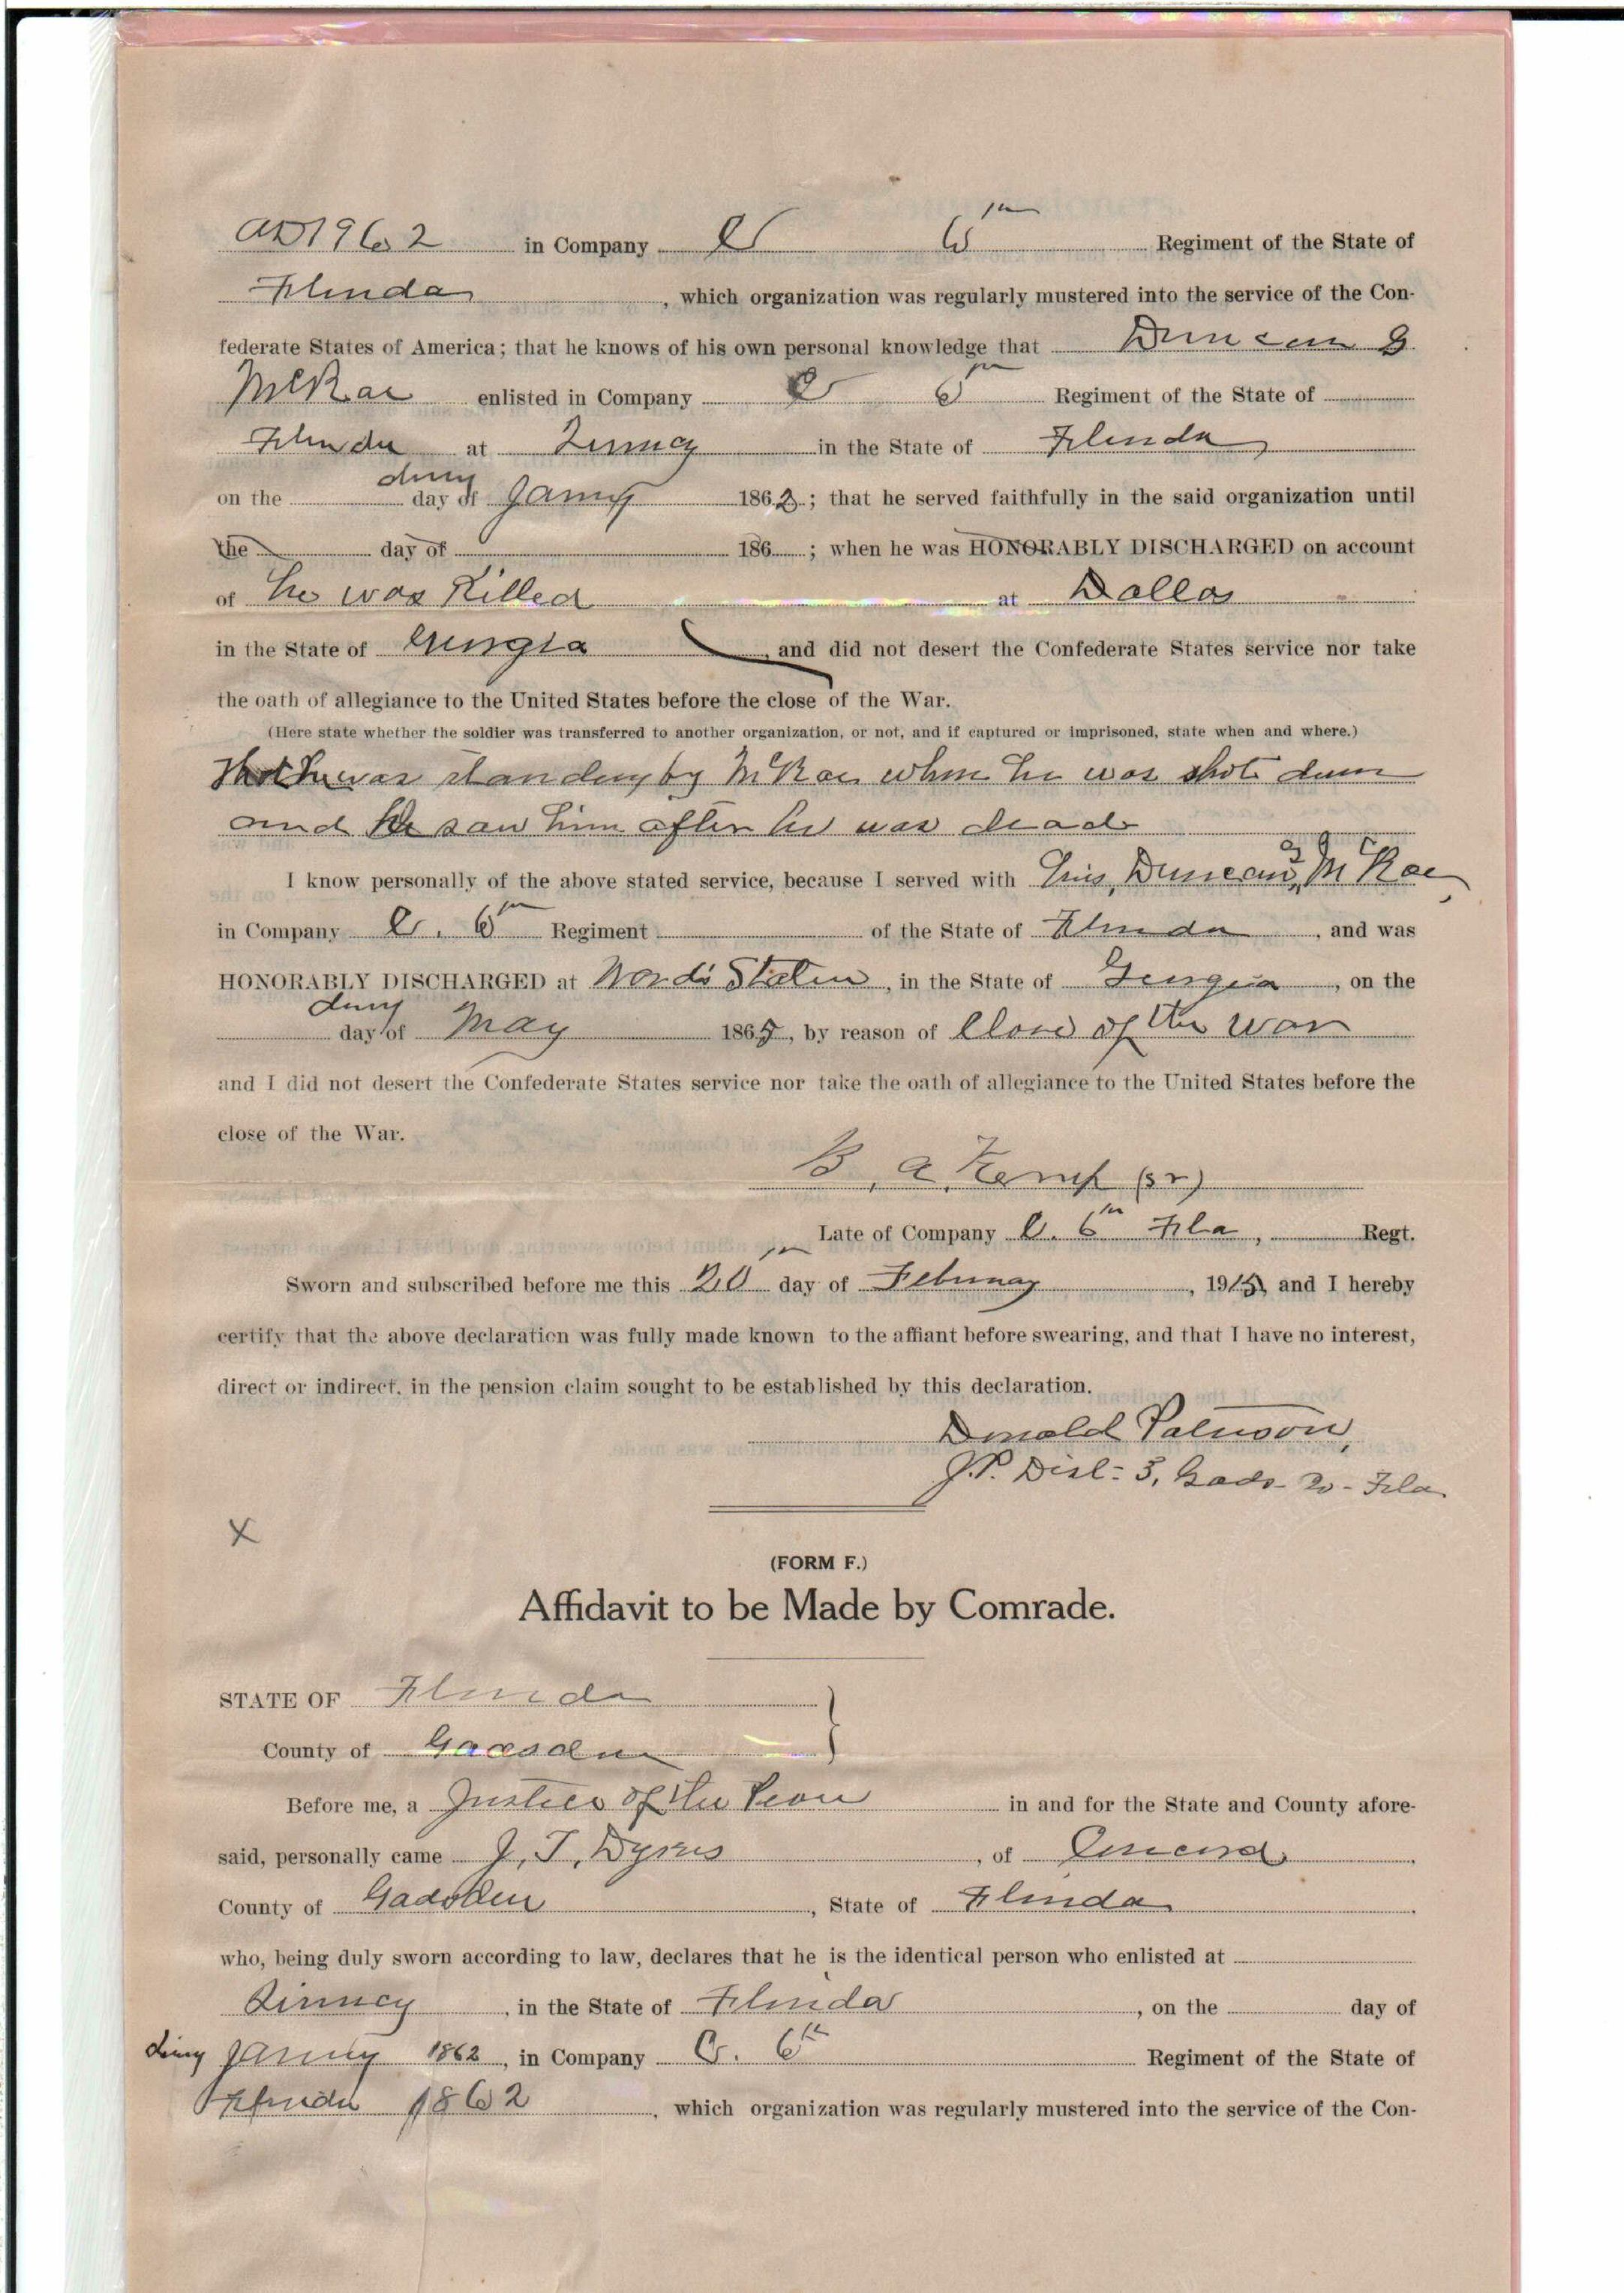 AD 1962 in Company C 6th Regiment of the State of
Florida, which organization was regularly mustered into the service of the Con-
federate States of America; that he knows of his own personal knowledge that Duncan G
McRae enlisted in Company C 6th Regiment of the State of
Florida at Quincy in the State of Florida
during
on the day of Jany 1862; that he served faithfully in the said organization until
the day of 186 ; when he was HONORABLY DISCHARGED on account
of he was Killed at Dallas
in the State of Georgia, and did not desert the Confederate States service nor take
the oath of allegiance to the United States before the close of the War.
(Here state whether the soldier was transferred to another organization, or not, and if captured or imprisoned, state when and where.)
that he was standing by McRae when he was shot down
and he saw him after he was dead
I know personally of the above stated service, because I served with him, Duncan G McRae,
in Company C. 6th Regiment of the State of Florida, and was
HONORABLY DISCHARGED at Station, in the State of Georgia, on the
during
day of May 1865, by reason of Close of the War
and I did not desert the Confederate States service nor take the oath of allegiance to the United States before the
close of the War.
B. A. Kemp (sr)
Late of Company C. 6th Fla, Regt.
Sworn and subscribed before me this 20th day of February, 1915, and I hereby
certify that the above declaration was fully made known to the affiant before swearing, and that I have no interest,
direct or indirect, in the pension claim sought to be established by this declaration.
Donald
J.P. Dist- 3, Gads- Co- Fla
X
(FORM F.)
Affidavit to be Made by Comrade.
STATE OF Florida
County of Gadsden
Before me, a Justice of the Peace in and for the State and County afore-
said, personally came J. T. Dykes, of Concord,
County of Gadsden, State of Florida
who, being duly sworn according to law, declares that he is the identical person who enlisted at
Quincy, in the State of Florida, on the day of
during Jany 1862, in Company C. 6th Regiment of the State of
Florida 1862, which organization was regularly mustered into the service of the Con-